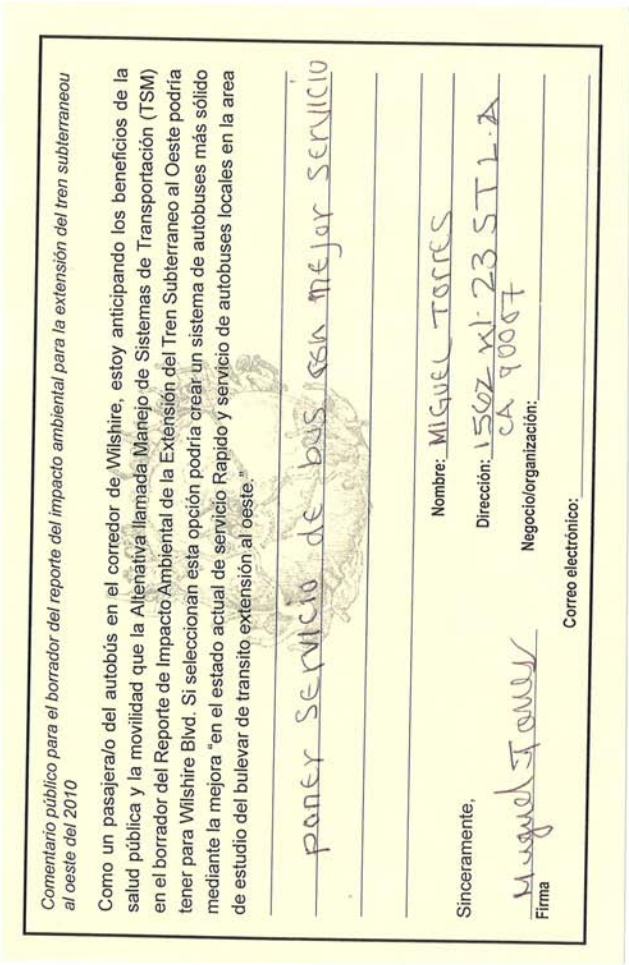 Comentario público para el borrador del reporte del impacto ambiental para la extensión del tren subterraneou
al oeste del 2010
Como un pasajera/o del autobús en el corredor de Wilshire, estoy anticipando los beneficios de la
salud pública y la movilidad que la Altenativa llamada Manejo de Sistemas de Transportación (TSM)
en el borrador del Reporte de Impacto Ambiental de la Extensión del Tren Subterraneo al Oeste podría
tener para Wilshire Blvd. Si seleccionan esta opción podría crear un sistema de autobuses más sólido
mediante la mejora “en el estado actual de servicio Rapido y servicio de autobuses locales en la area
de estudio del bulevar de transito extensión al oeste.”
poner servicio de bus con mejor servicio
Sinceramente,
Nombre: MIGUEL TORRES
Dirección: 1562 W. 23 ST L.A
CA 90007
Miguel Torres
Firma
Negocio/organización:
Correo electrónico: